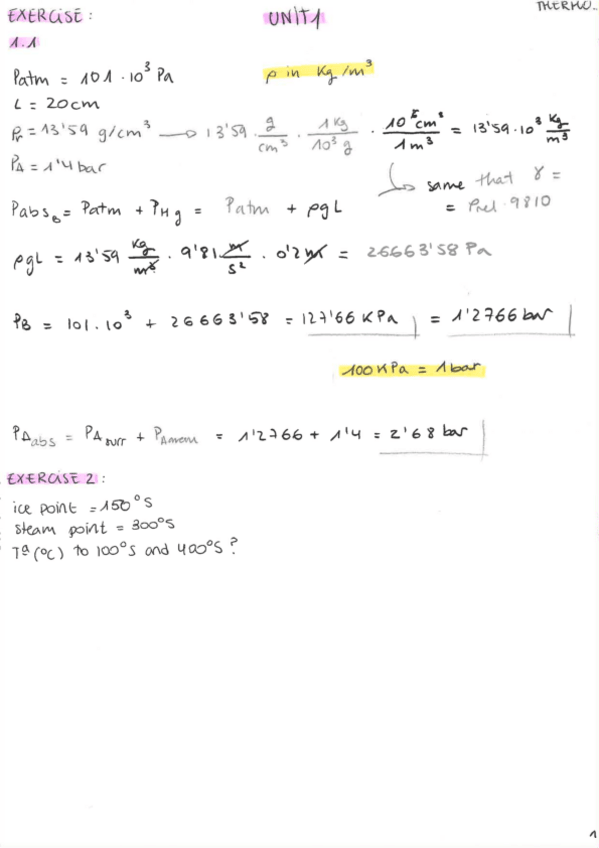 EXERCISE: UNIT 1 THERMO..
1.1
Patm = 101 · 10³ Pa ρ in Kg/m³
L = 20cm
ρr = 13'59 g/cm³ → 13'59 · g/cm³ · 1 Kg/10³ g · 10⁶ cm³/1 m³ = 13'59 · 10³ Kg/m³
PA = 1'4 bar
same that γ =
= ρrel · 9810
PabsB = Patm + PHg = Patm + ρgL
ρgL = 13'59 Kg/m³ · 9'81 m/s² · 0'2 m = 26663'58 Pa
PB = 101 · 10³ + 26663'58 = 127'66 KPa = 1'2766 bar
100 KPa = 1 bar
PAabs = PAsurr + PAmom = 1'2766 + 1'4 = 2'68 bar
EXERCISE 2:
ice point = 150°S
steam point = 300°S
Tª (°C) to 100°S and 400°S?
1